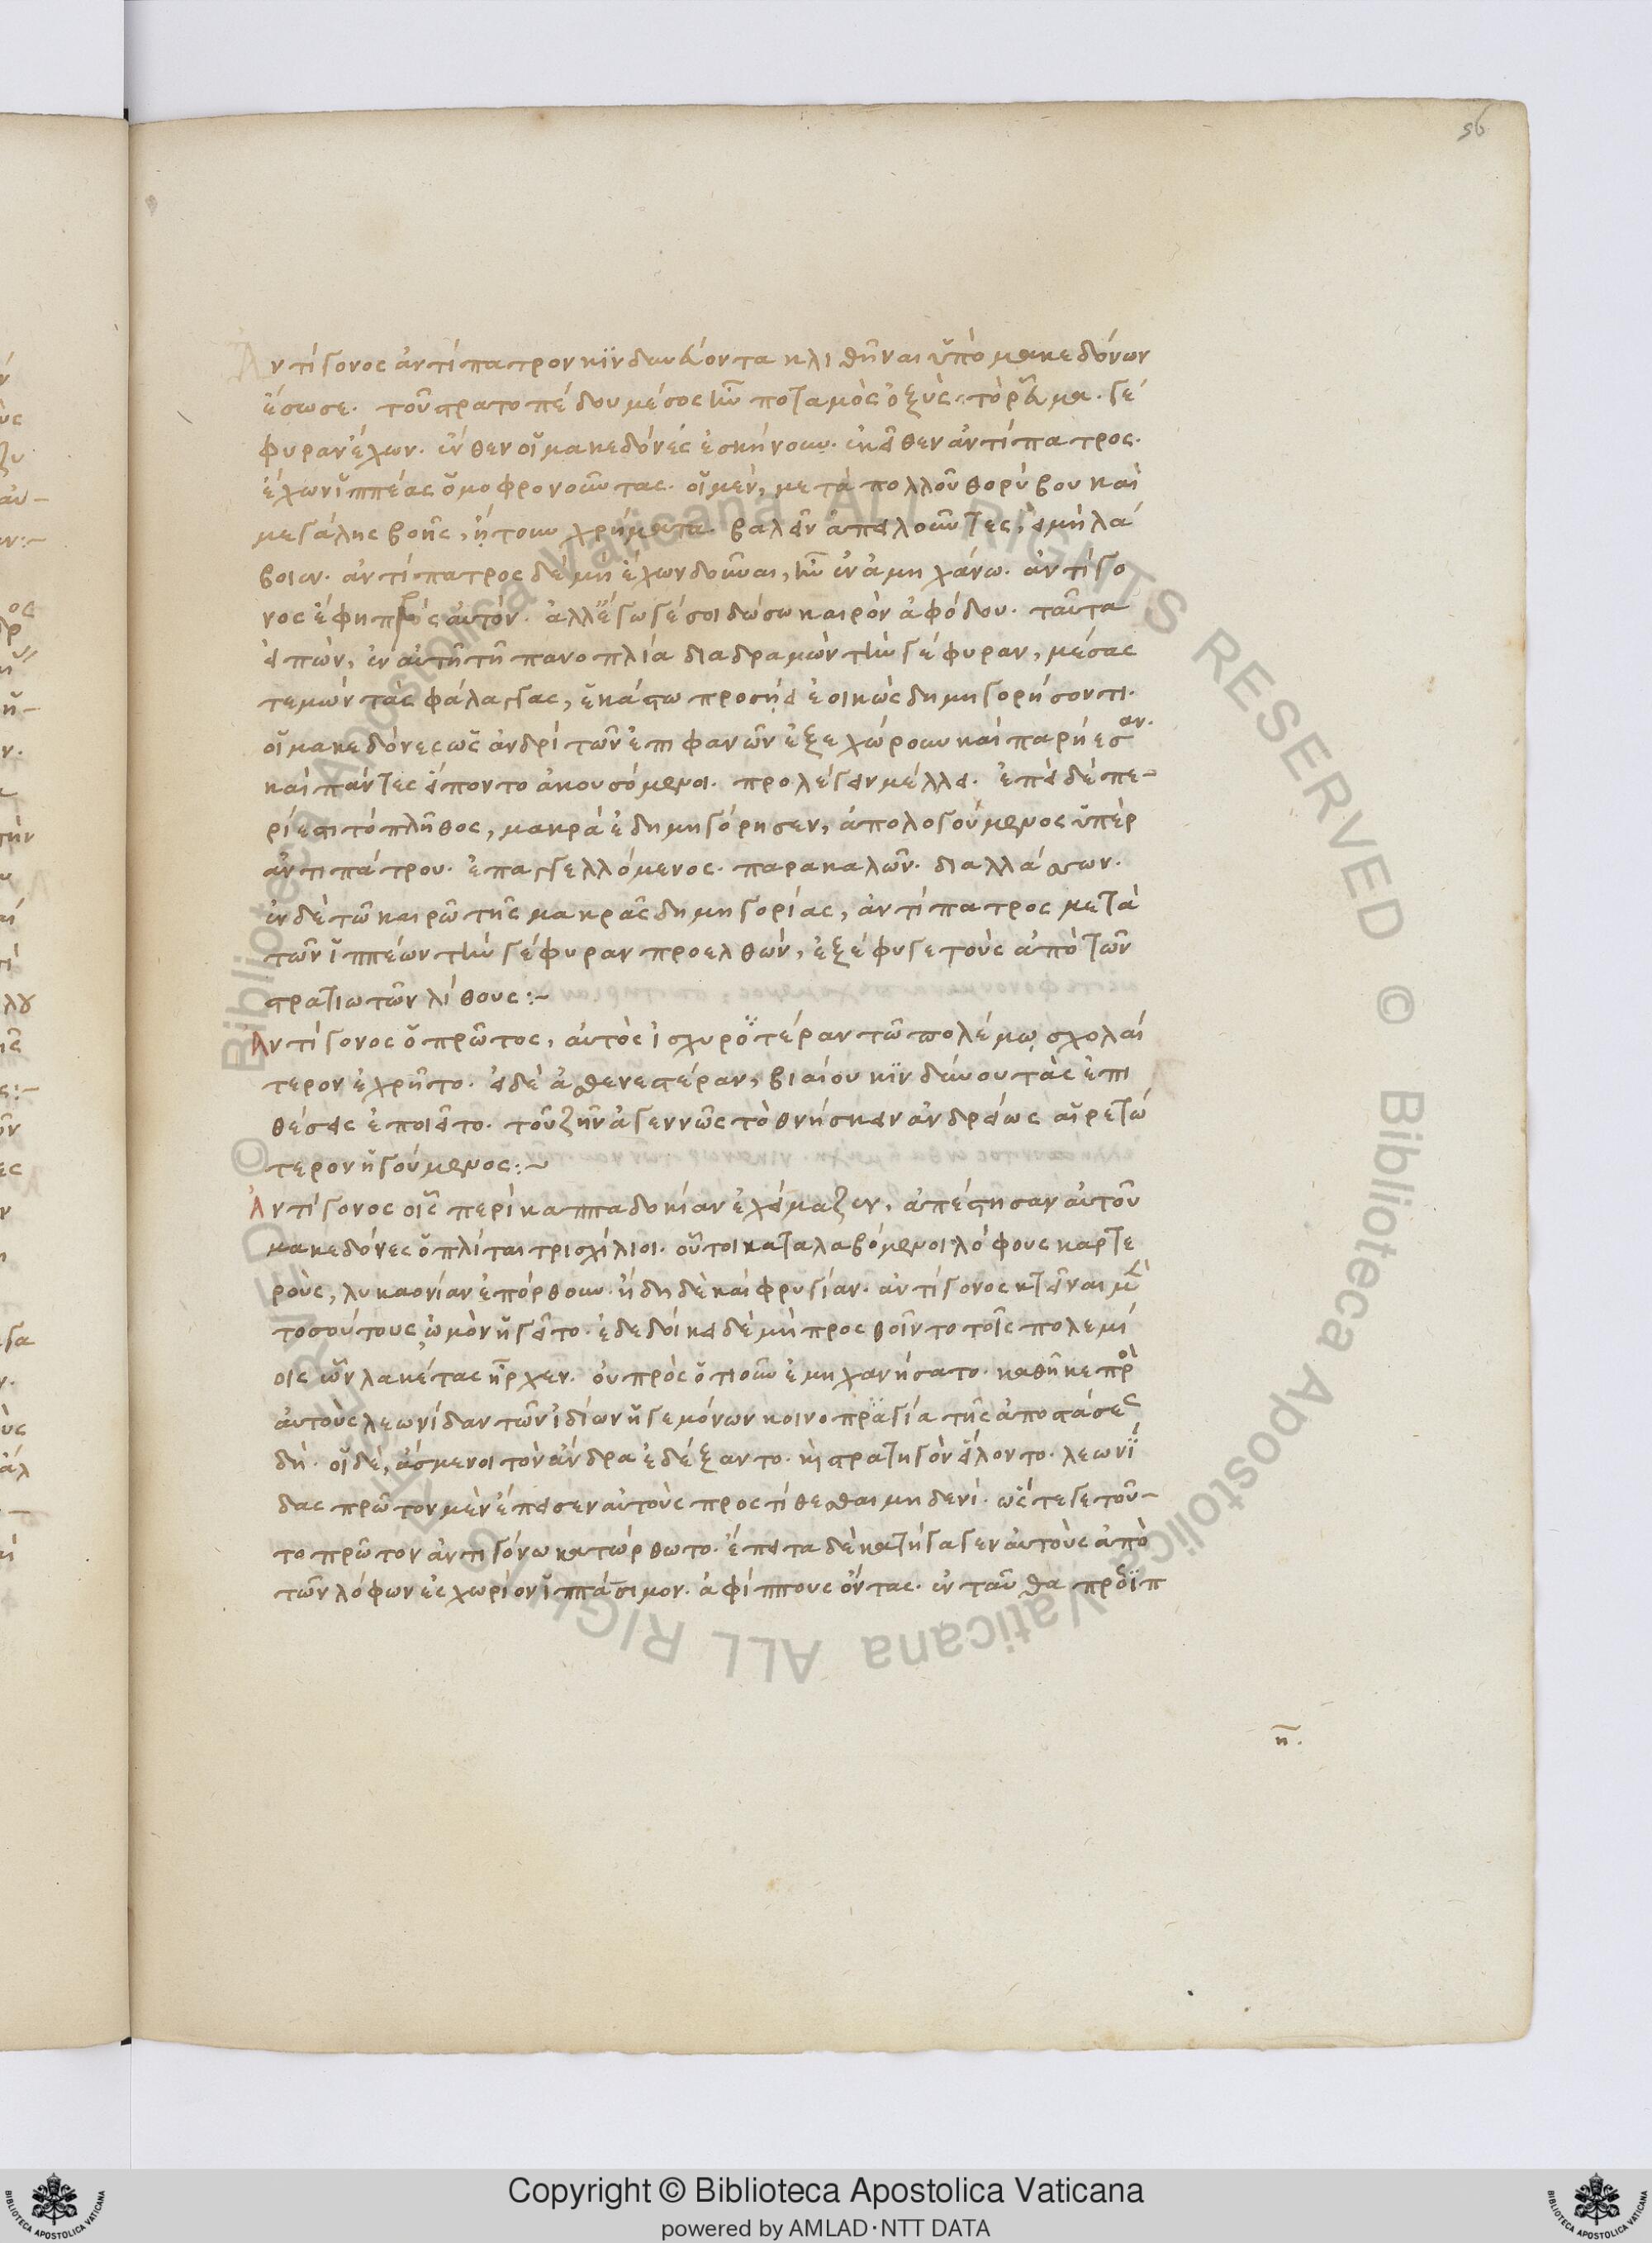 56
Ἀντίγονος ἀντίπατρον κινδυνεύοντα κλιθῆναι ὑπὸ μακεδόνων
ἔσωσε. τοῦ στρατοπέδου μέσος ἦν ποταμὸς ὀξὺς τὸ ῥεῦμα. γέ
φυραν ἔχων. ἔνθεν οἱ μακεδόνες ἐσκήνουν. ἐκεῖθεν ἀντίπατρος.
ἔχων ἱππέας ὁμοφρονοῦντας. οἱ μὲν, μετὰ πολλοῦ θορύβου καὶ
μεγάλης βοῆς, ᾔτουν χρήματα. βαλεῖν ἀπειλοῦντες, εἰ μὴ λά
βοιεν. ἀντίπατρος δὲ μὴ ἔχων δοῦναι, ἦν ἐν ἀμηχάνω. ἀντίγο
νος ἔφη πρὸς αὐτόν. ἀλλ' ἔγωγέ σοι δώσω καιρὸν ἀφόδου. ταῦτα
εἰπὼν, ἐν αὐτῆ τῆ πανοπλία διαδραμὼν τὴν γέφυραν, μέσας
τεμὼν τὰς φάλαγγας, ἑκάστω προσήει ἐοικὼς δημηγορήσοντι.
οἱ μακεδόνες ὡς ἀνδρὶ τῶν ἐπιφανῶν ἐξεχώρουν καὶ παρήεσαν.
καὶ πάντες εἵποντο ἀκουσόμενοι. προλέγειν μέλλει. ἐπεὶ δὲ πε-
ρίεστι τὸ πλῆθος, μακρὰ ἐδημηγόρησεν, ἀπολογούμενος ὑπὲρ
ἀντιπάτρου. ἐπαγγελλόμενος. παρακαλῶν. διαλλάσσων.
ἐν δὲ τῶ καιρῶ τῆς μακρᾶς δημηγορίας, ἀντίπατρος μετὰ
τῶν ἱππέων τὴν γέφυραν προελθὼν, ἐξέφυγε τοὺς ἀπὸ τῶν
στρατιωτῶν λίθους:~
Ἀντίγονος ὁ πρῶτος, αὐτὸς ἰσχυροτέραν τῶ πολέμω σχολαί
τερον ἐχρῆτο. εἰ δὲ ἀσθενεστέραν, βιαίου κινδύνου τὰς ἐπι
θέσεις ἐποιεῖτο. τοῦ ζῆν ἀγεννῶς τὸ θνήσκειν ἀνδρείως αἱρετώ
τερον ἡγούμενος:~
Ἀντίγονος οἷς περὶ καππαδοκίαν ἐχείμαζεν, ἀπέστησαν αὐτοῦ
μακεδόνες ὁπλῖται τρισχίλιοι. οὗτοι καταλαβόμενοι λόφους καρτε
ροὺς, λυκαονίαν ἐπόρθουν. ἤδη δὲ καὶ φρυγίαν. ἀντίγονος κτεῖναι μὲν
τοσούτους, ὠμὸν ἡγεῖτο. ἐδεδοίκει δὲ μὴ προσθοῖντο τοῖς πολεμί
οις ὧν λακέτας ἦρχεν. οὐ πρὸς ὅτιοῦν ἐμηχανήσατο. καθῆκε πρὸς
αὐτοὺς λεωνίδαν τῶν ἰδίων ἡγεμόνων κοινοπραγία τῆς ἀποστάσεως
δή. οἱ δὲ, ἄσμενοι τὸν ἄνδρα ἐδέξαντο. καὶ στρατηγὸν εἵλοντο. λεωνί
δας πρῶτον μὲν ἔπεισεν αὐτοὺς προστίθεσθαι μηδενί. ὥστε γε τοῦ-
το πρῶτον ἀντιγόνω κατώρθωτο. ἔπειτα δὲ κατήγαγεν αὐτοὺς ἀπὸ
τῶν λόφων ἐς χωρίον ἱππάσιμον. ἀφίππους ὄντας. ἐνταῦθα προϊπ
η.
Copyright © Biblioteca Apostolica Vaticana
powered by AMLAD·NTT DATA